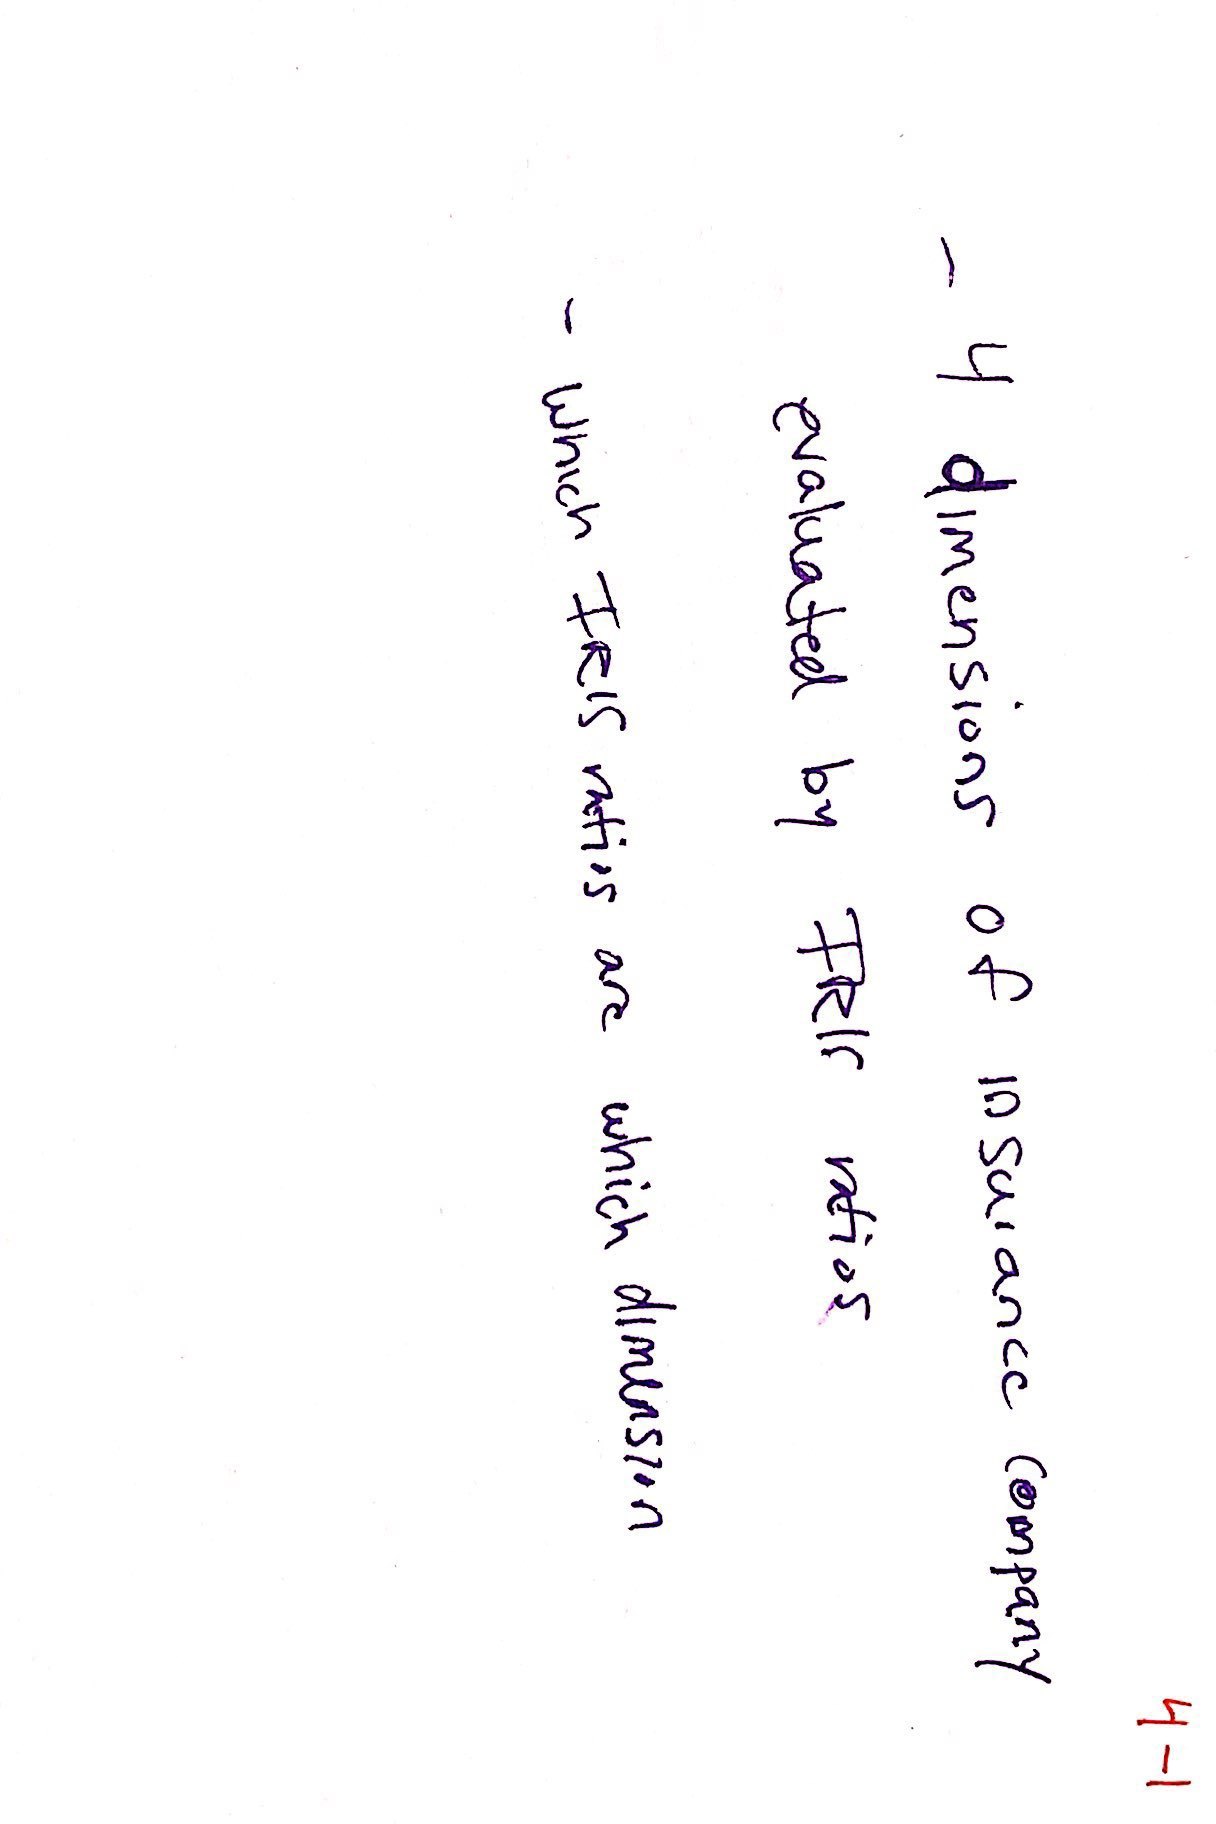 4-1
- 4 dimensions of insurance company
evaluated by IRIS ratios
- Which IRIS ratios are which dimension